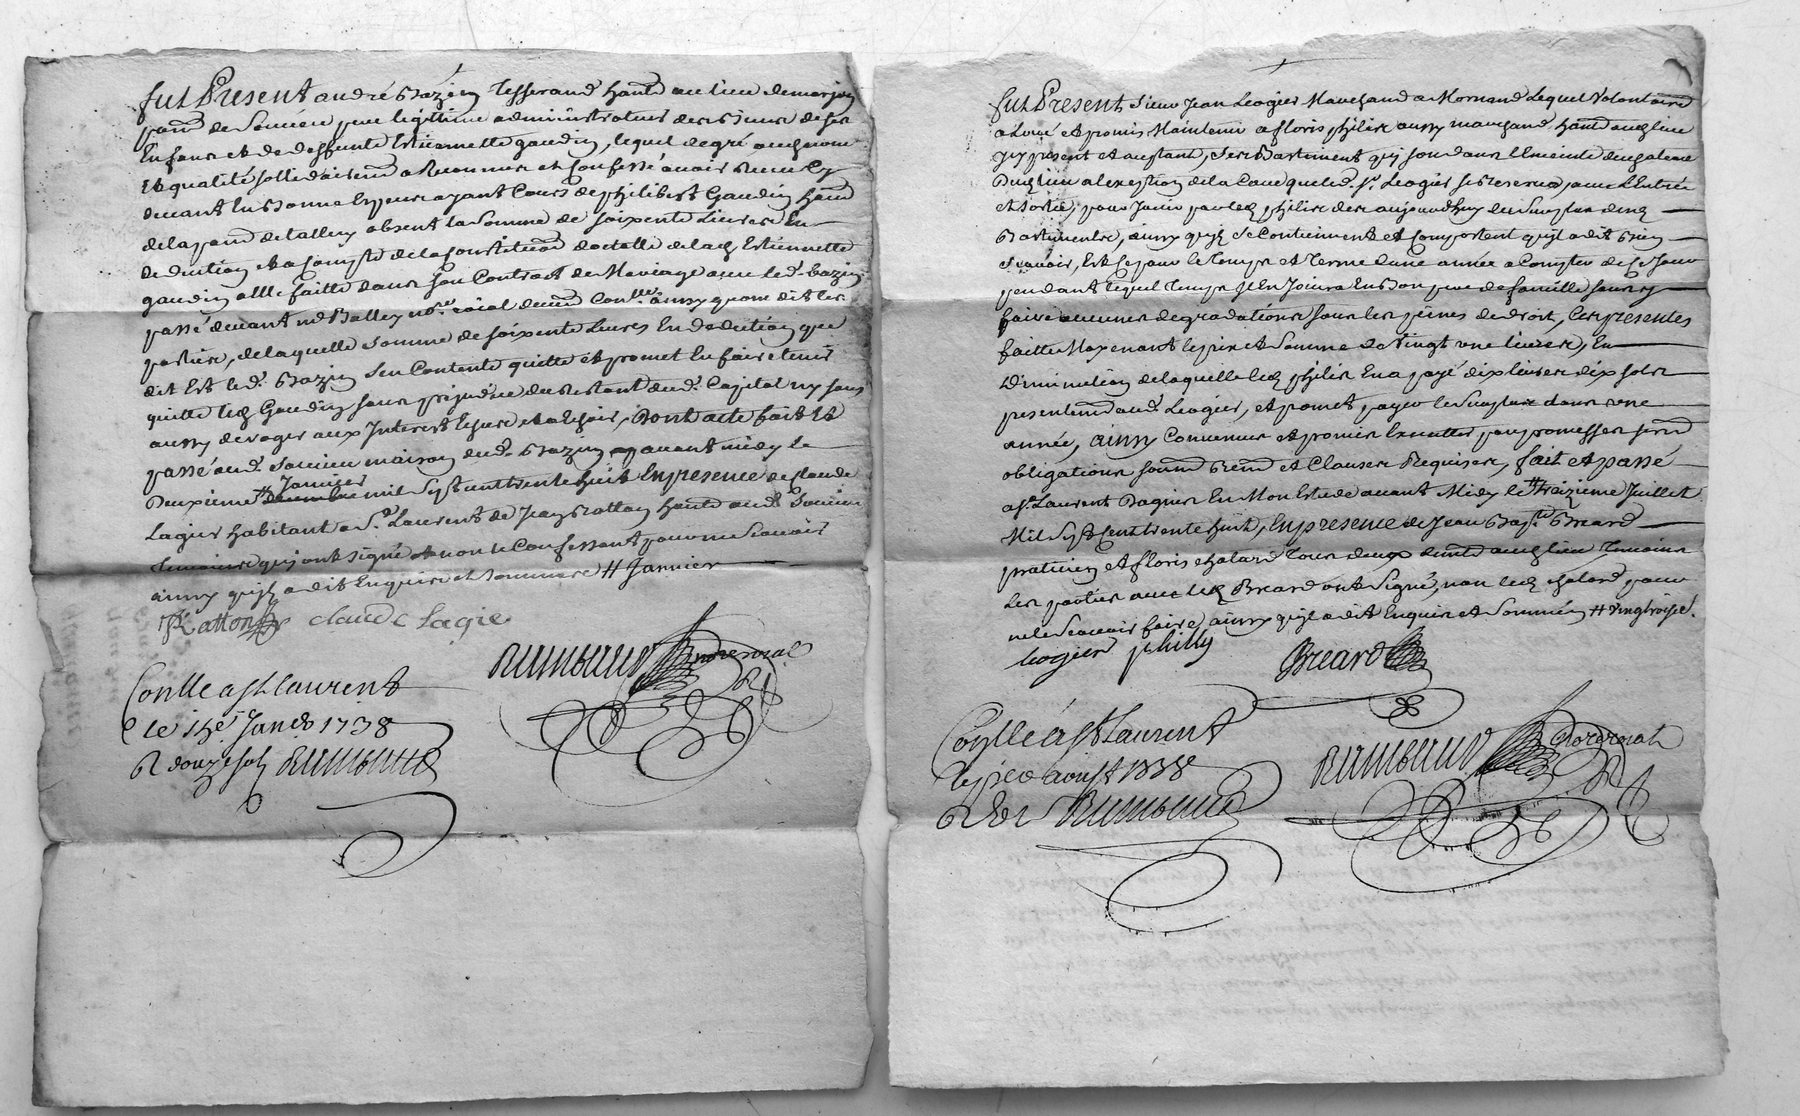 fut Present andré Bazin Tisserand habt au lieu de marjon
parr de Souvieu pere legitime administrateur des biens de ses
Enfans et de deffunte Estiennette gaudin, lequel de gré
Et qualité a Reconneu et Confessé avoir Receu Cy
devant En Bonne Espece ayant Cours de philibert Gaudin habt
de la parr de tallery absent la Somme de soixente Livres En
deduction de la Constitution dotalle de lad Estiennette
gaudin a Elle faitte dans son Contract de Mariage avec led. bazin
passé devant me Balley nore roial ainsy qu'on dit les
parties, de laquelle Somme de soixente Livres En deduction que
dit Est led. Bazin S'en Contente quitte et promet En faire tenir
quitte led Gaudin sans prejudice du Restant dud. Capital ny sans
aussy deroger aux Interest Echeus et a Echoir, Dont acte fait Et
passé aud. Souvieu maison dud. Bazin avant midy le
Deuxieme # Janvier mil Sept cent trente huit En presence de Claude
Lagier habitant a St. Laurent de Jean Ratton habt aud. Souvieu
temoins qui ont signé et non le Confessant pour ne Scavoir
ainsy qu'il a dit Enquis et Sommé # Janvier
Ratton claude Lagie
Rimbaud nore roial
Conlle a St Laurent
le 15e Janer 1738
R douze sols Rimbaud
fut Present, Sieur Jean Leogier Marchand a Mornand Lequel Volontaire
a Loué et promis Maintenir a floris philis aussy marchand habt aud lieu
icy present et acceptant, Ses Bastiments qui sont dans L'Enceinte
Dud lieu a l'exeption de la Cave que led. Sr. Leogier se Reserve, avec L'Entrée
et Sortie, pour Jouir par led philis des aujourdhuy du Surplus desd
Bastiments, ainsy qu'ils se Contiennent et Comportent qu'il a dit Bien
Scavoir, Et Ce pour le temps et terme d'une année a Compter de Ce Jour
pendant lequel temps Il En Jouira En Bon pere de famille sans y
faire aucunes degradations sous les peines de droit, Les presentes
faittes Moyenant le prix et Somme de Vingt une livres, En
Diminution de laquelle led philis En a payé dix livres dix sols
presentement aud. Leogier, et promet payer le Surplus dans une
année, ainsy Convenu et promis Executter par promesses serment
obligations soumn Renn et Clauses Requises, fait et passé
a St. Laurent Dagnier En Mon Estude avant Midy le # treizieme Juillet
Mil Sept Cent trente huit, En presence de Jean Bapte Breard
praticien et floris chalard tous deux demt aud lieu temoins
Les parties avec led Breard ont Signé, non led chalard pour
ne le Scavoir faire, ainsy qu'il a dit Enquis et Sommé, # Vingtroisie.
Leogier philly
Breard
Rimbaud nore roial
Conlle a St Laurent
le aoust 1738
R Rimbaud